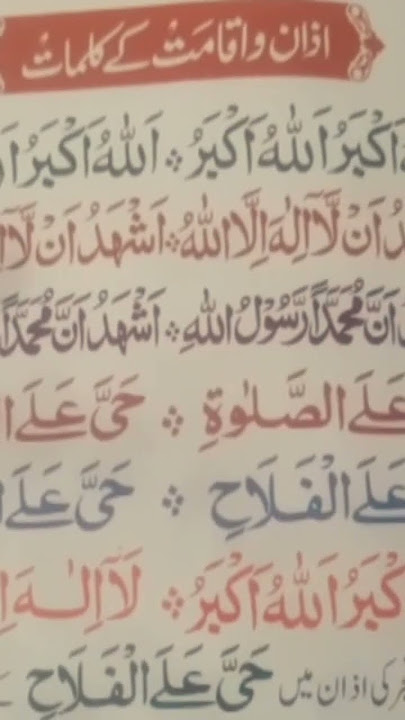 اذان و اقامت کے کلمات
اَکْبَرُ اَللّٰهُ اَکْبَرُ ۞ اَللّٰهُ اَکْبَرُ
اَنْ لَّاۤ اِلٰهَ اِلَّا اللّٰهُ ۞ اَشْهَدُ اَنْ لَّاۤ
اَنَّ مُحَمَّدًا رَّسُوْلُ اللّٰهِ ۞ اَشْهَدُ اَنَّ مُحَمَّدًا
عَلَی الصَّلٰوةِ ۞ حَیَّ عَلَی
عَلَی الْفَلَاحِ ۞ حَیَّ عَلَی
اَکْبَرُ اَللّٰهُ اَکْبَرُ ۞ لَاۤ اِلٰهَ
کی اذان میں حَیَّ عَلَی الْفَلَاحِ